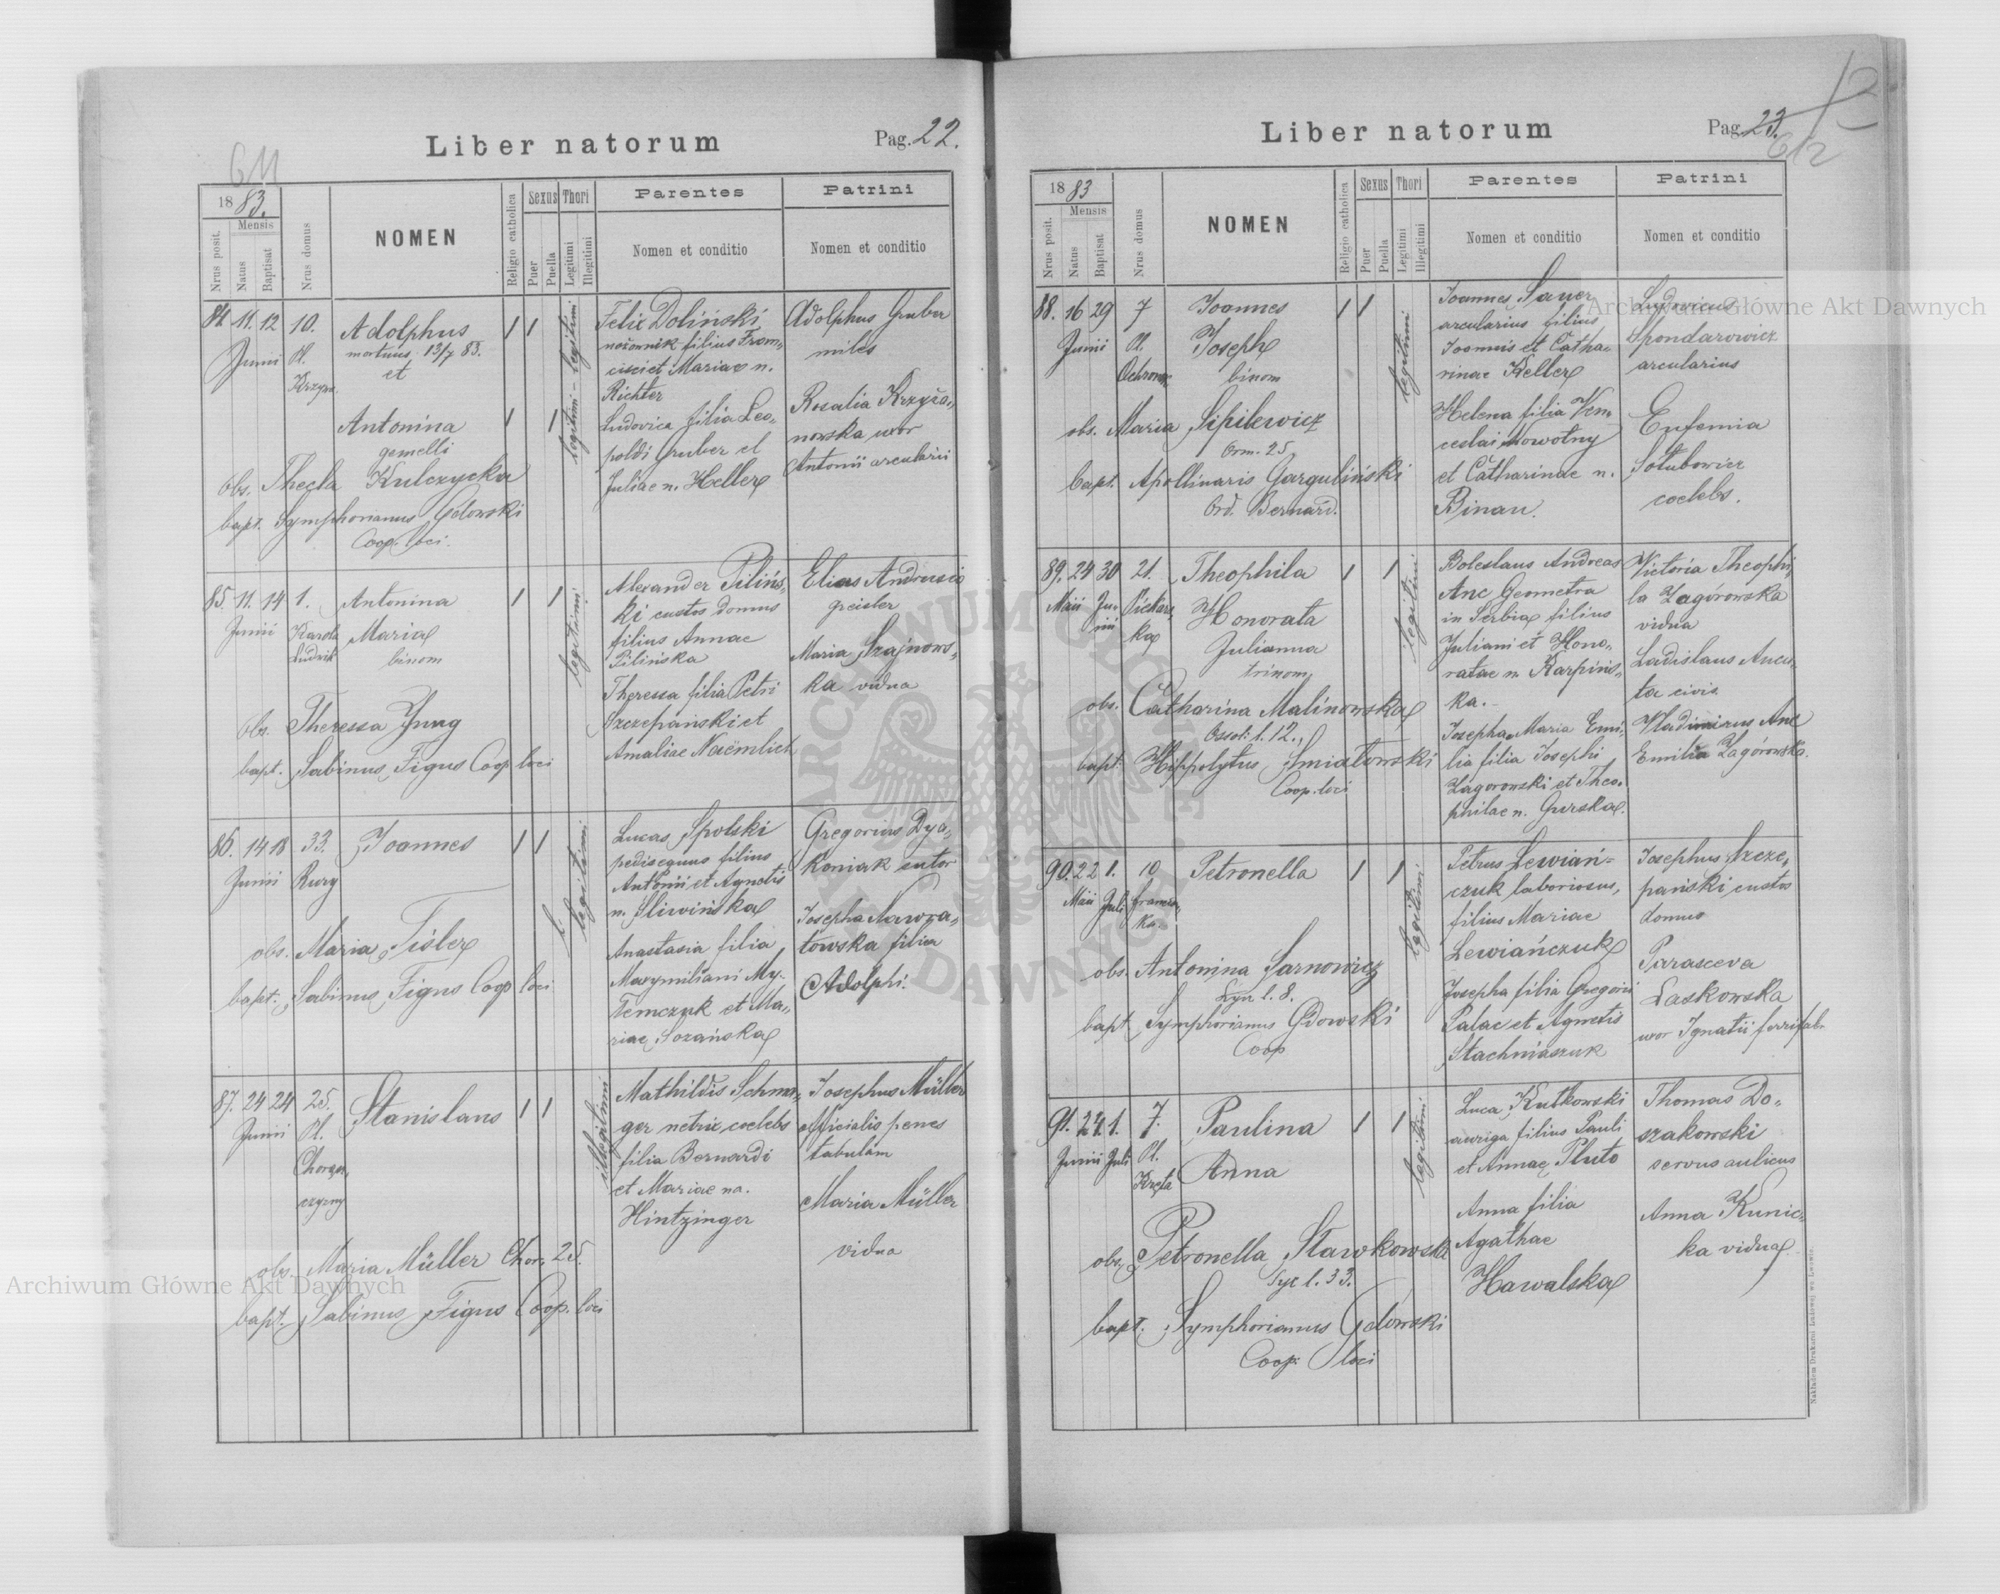 Liber natorum
Pag. 22.
611
1883.
Nrus posit.
Mensis
Natus
Baptisat
Nrus domus
NOMEN
Religio catholica
Sexus
Puer
Puella
Thori
Legitimi
Illegitimi
Parentes
Nomen et conditio
Patrini
Nomen et conditio
84. 11. 12 10.
Junii Pl.
Adolphus
mortuus, 13/7 83.
et
Antonina
gemelli
1 1
1 1
legitimi - legitimi
Felix Doliński
nożownik filius Fran-
cisci et Mariae n.
Richter
Ludovica filia Leo-
poldi Gruber et
Juliae n. Heller
Adolphus Gruber
miles
Rosalia Krzyża-
nowska uxor
Antonii arcularii
obs. Thecla Kulczycka
bapt. Symphorianus Gdowski
Coop. loci.
85. 11. 14 1.
Junii Karola
Ludwik
Antonina
Maria
binom
1 1
legitimi
Alexander Pilińs-
ki custos domus
filius Annae
Pilińska
Theressa filia Petri
Szczepański et
Amaliae Naëmlich
Elias Andrusio
greisler
Maria Szajnows-
ka vidua
obs. Theressa Jung
bapt. Sabinus Figus Coop loci
86. 14 18 33.
Junii Rury
Joannes
1 1
legitimi
Lucas Spolski
pedisequus filius
Antonii et Agnetis
n. Sliwińska
Anastasia filia
Maxymiliani My-
Temczuk et Ma-
riae Sozańska
Gregorius Dya-
koniak sutor
Josepha Nawra-
towska filia
Adolphi.
obs. Maria Tisler
bapt. Sabinus Figus Coop loci
87. 24 24 25.
Junii Pl.
Chorąż-
czyzny
Stanislaus
1 1
illegitimi
Mathildis Schwa-
ger netrix coelebs
filia Bernardi
et Mariae na.
Hintzinger
Josephus Müller
officialis penes
tabulam
Maria Müller
vidua
obs. Maria Müller Chor. 25.
bapt. Sabinus Figus Coop. loci
Liber natorum
Pag. 23.
612
1883
Nrus posit.
Mensis
Natus
Baptisat
Nrus domus
NOMEN
Religio catholica
Sexus
Puer
Puella
Thori
Legitimi
Illegitimi
Parentes
Nomen et conditio
Patrini
Nomen et conditio
88. 16 29 7
Junii Pl.
Joannes
Joseph
binom
1 1
legitimi
Joannes Sauer
arcularius filius
Joannis et Catha-
rinae Keller
Helena filia Ven-
ceslai Nowotny
et Catharinae n.
Binau.
Ludovicus
Spondarowicz
arcularius
Eufemia
Sołubowicz
coelebs.
obs. Maria Sipilewicz
Orm. 25
bapt. Apollinaris Garguliński
Ord. Bernard.
89. 24 30 21.
Maii Ju-
nii Piekars-
ka
Theophila
Honorata
Julianna
trinom
1 1
legitimi
Boleslaus Andreas
Anc Geometra
in Serbia filius
Juliani et Hono-
ratae n. Karpińs-
ka.
Josepha Maria Emi-
lia filia Josephi
Zagorowski et Theo-
philae n. Gurska.
Victoria Theophi-
la Zagórowska
vidua
Ladislaus Ancu-
ta civis
Wladimirus Anc
Emilia Zagórowska.
obs. Catharina Malinowska
Ossol: l. 12.
bapt. Hippolytus Smiatowski
Coop. loci
90. 22 1. 10
Maii Juli
Petronella
1 1
legitimi
Petrus Lewiań-
czuk laboriosus,
filius Mariae
Lewiańczuk
Josepha filia Gregorii
Palac et Agnetis
Stachniaszuk
Josephus Szcze-
pański custos
domus
Parasceva
Laskowska
uxor Ignatii ferrifab.
obs. Antonina Sarnowicz
Łyn l. 8.
bapt. Symphorianus Gdowski
Coop
91. 24. 1. 7.
Junii Juli Pl.
Kręta
Paulina
Anna
1 1
legitimi
Luca Kutkowski
auriga filius Pauli
et Annae Pluto
Anna filia
Agathae
Hawalska
Thomas Do-
szakowski
servus aulicus
Anna Kunic-
ka vidua
obs. Petronella Stawkowska
Syc l. 33.
bapt. Symphorianus Gdowski
Coop. loci
Nakładem Drukarni Ludowej we Lwowie.
Archiwum Główne Akt Dawnych
Archiwum Główne Akt Dawnych
ARCHIWUM GŁÓWNE AKT DAWNYCH